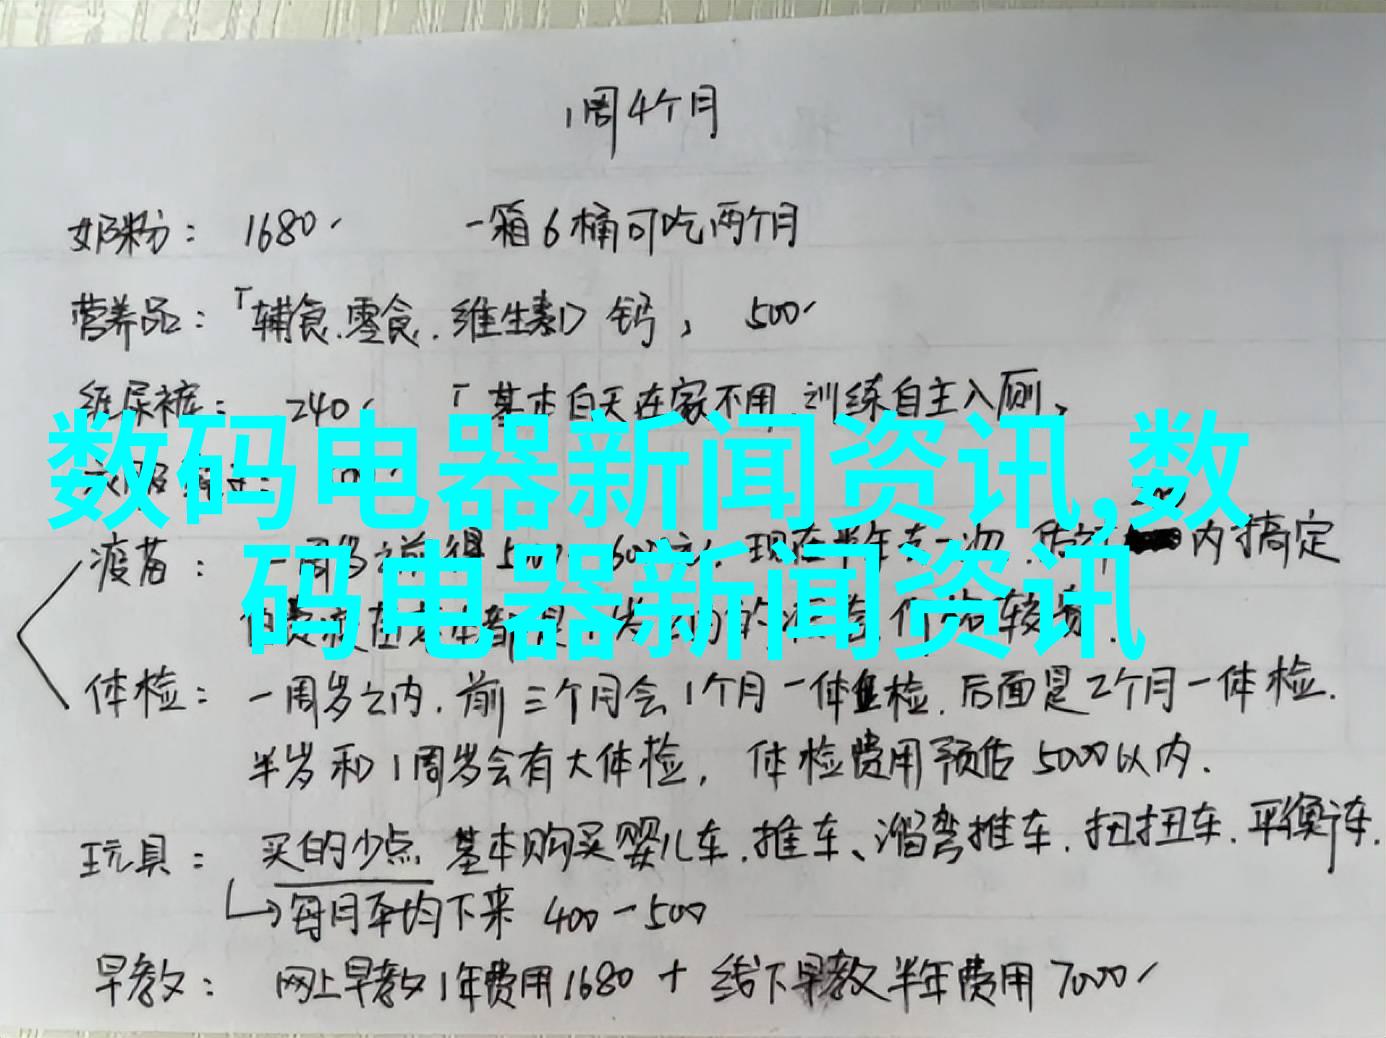 1周4个月
奶粉： 1680 一箱6桶可吃两个月
营养品：「辅食.零食.维生素D 钙， 500
纸尿裤： 240 「基本白天在家不用,训练自主入厕,
数码电器新闻资讯,数
码电器新闻资讯
疫苗： 一周岁之前 内搞定
体检： 一周岁之内.前三个月会1个月一体检.后面是2个月一体检.
半岁和1周岁会有大体检， 体检费用预估5000以内.
玩具： 买的少点 基本购买婴儿车.推车、溜弯推车.扭扭车.平衡车.
每月平均下来 400-500
早教： 网上早教1年费用1680 + 线下早教半年费用7000